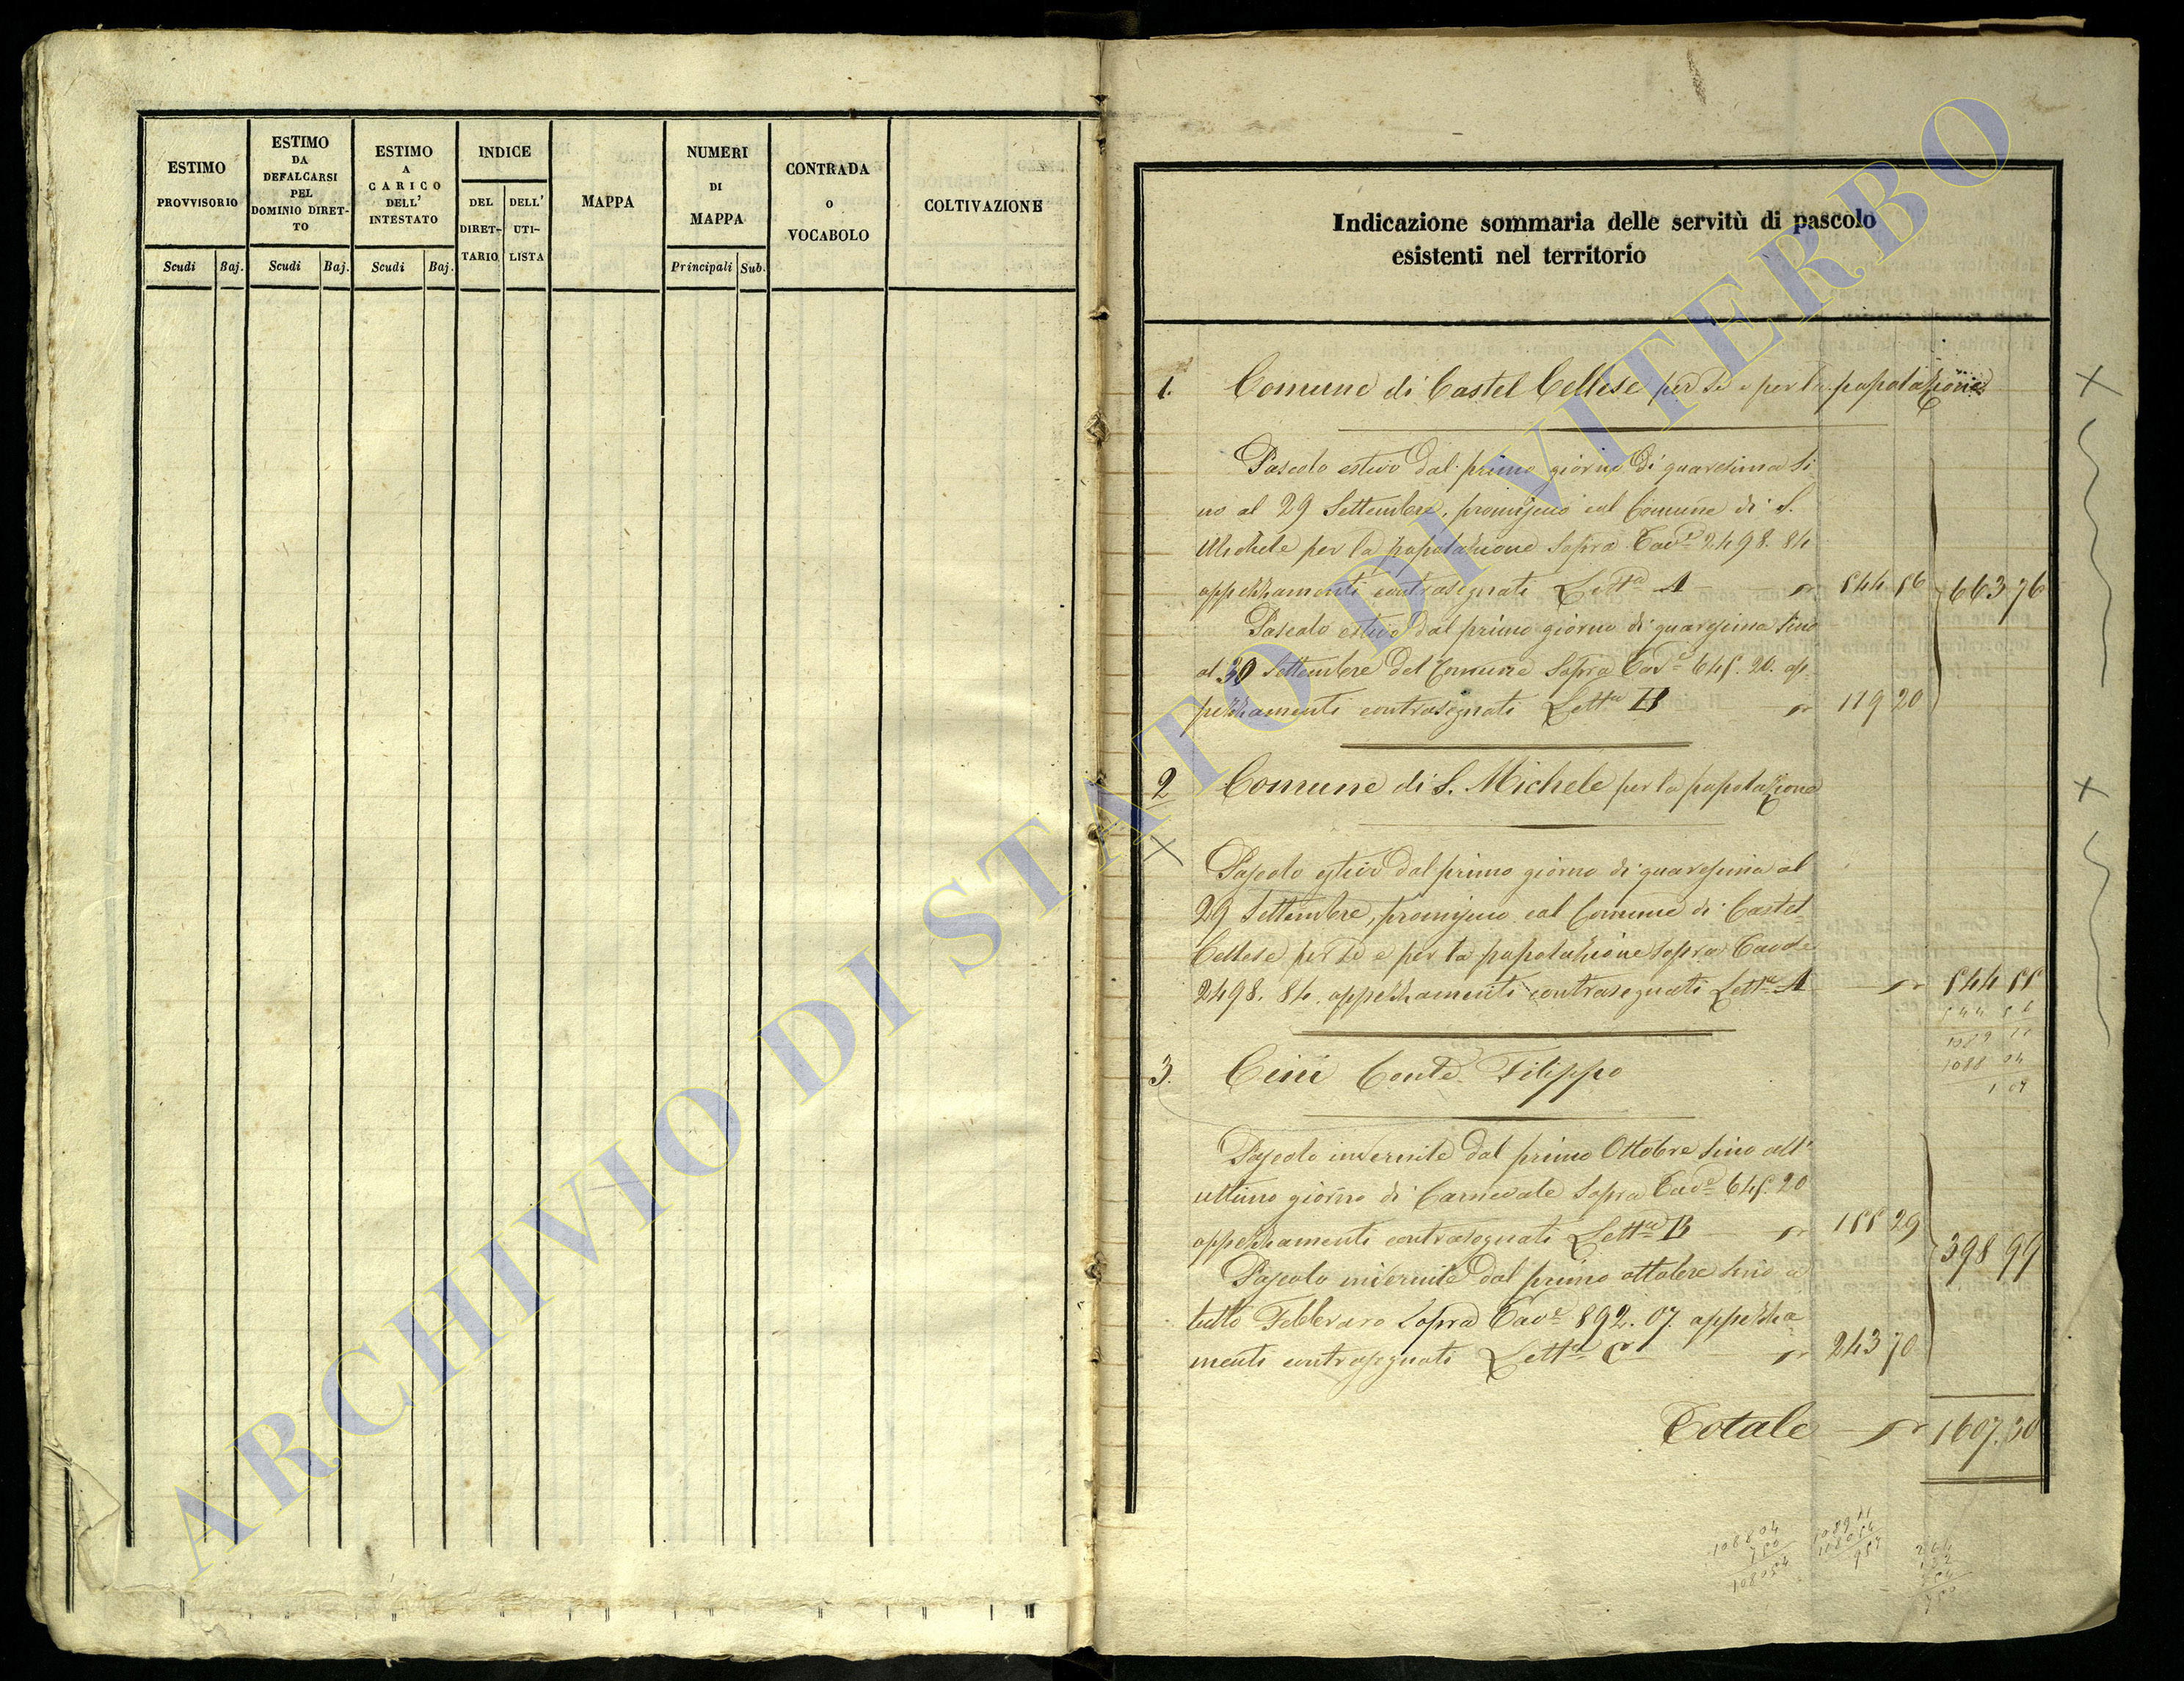 ESTIMO
PROVVISORIO
Scudi Baj.
ESTIMO
DA
DEFALCARSI
PEL
DOMINIO DIRET-
TO
Scudi Baj.
ESTIMO
A
CARICO
DELL'
INTESTATO
Scudi Baj.
INDICE
DEL
DIRET-
TARIO
DELL'
UTI-
LISTA
MAPPA
NUMERI
DI
MAPPA
Principali Sub.
CONTRADA
O
VOCABOLO
COLTIVAZIONE
Indicazione sommaria delle servitù di pascolo
esistenti nel territorio
1. Comune di Castel Cellese per Se e per la popolazione
Pascolo estivo dal primo giorno di quaresima si
no al 29 Settembre, promiscuo col Comune di S.
Michele per la popolazione sopra Tavᵉ 2498.84
appezzamenti contrasegnati Lettᵃ A 544 56 663 76
Pascolo estivo dal primo giorno di quaresima sino
al 30 Settembre del Comune sopra Tavᵉ 645.20. ap-
pezzamenti contrasegnati Lettᵃ B 119 20
2 Comune di S. Michele per la popolazione
Pascolo estivo dal primo giorno di quaresima al
29 Settembre, promiscuo col Comune di Castel-
Cellese per Se e per la popolazione sopra Tavole
2498.84. appezzamenti contrasegnati Lettᵃ A 544 55
544 56
1089 11
1088 04
1 07
3. Cini Conte Filippo
Pascolo invernile dal primo Ottobre sino all'
ultimo giorno di Carnevale sopra Tavᵉ 645.20
appezzamenti contrasegnati Lettᵃ B 155 29 398 99
Pascolo invernile dal primo ottobre sino a
tutto Febbraro sopra Tavᵉ 892.07. appezza-
menti contrasegnati Lettᵃ C 243 70
Totale 1607.30
108804
750
108054
108911
108054
857
264
132
354
750
ARCHIVIO DI STATO DI VITERBO